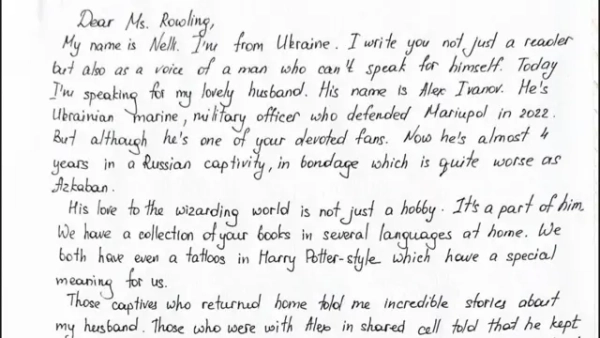 Dear Ms. Rowling,
My name is Nelli. I'm from Ukraine. I write you not just a reader
but also as a voice of a man who can't speak for himself. Today
I'm speaking for my lovely husband. His name is Alex Ivanov. He's
Ukrainian marine, military officer who defended Mariupol in 2022.
But although he's one of your devoted fans. Now he's almost 4
years in a Russian captivity, in bondage which is quite worse as
Azkaban.
His love to the wizarding world is not just a hobby. It's a part of him.
We have a collection of your books in several languages at home. We
both have even a tattoos in Harry Potter-style which have a special
meaning for us.
Those captives who returned home told me incredible stories about
my husband. Those who were with Alex in shared cell told that he kept